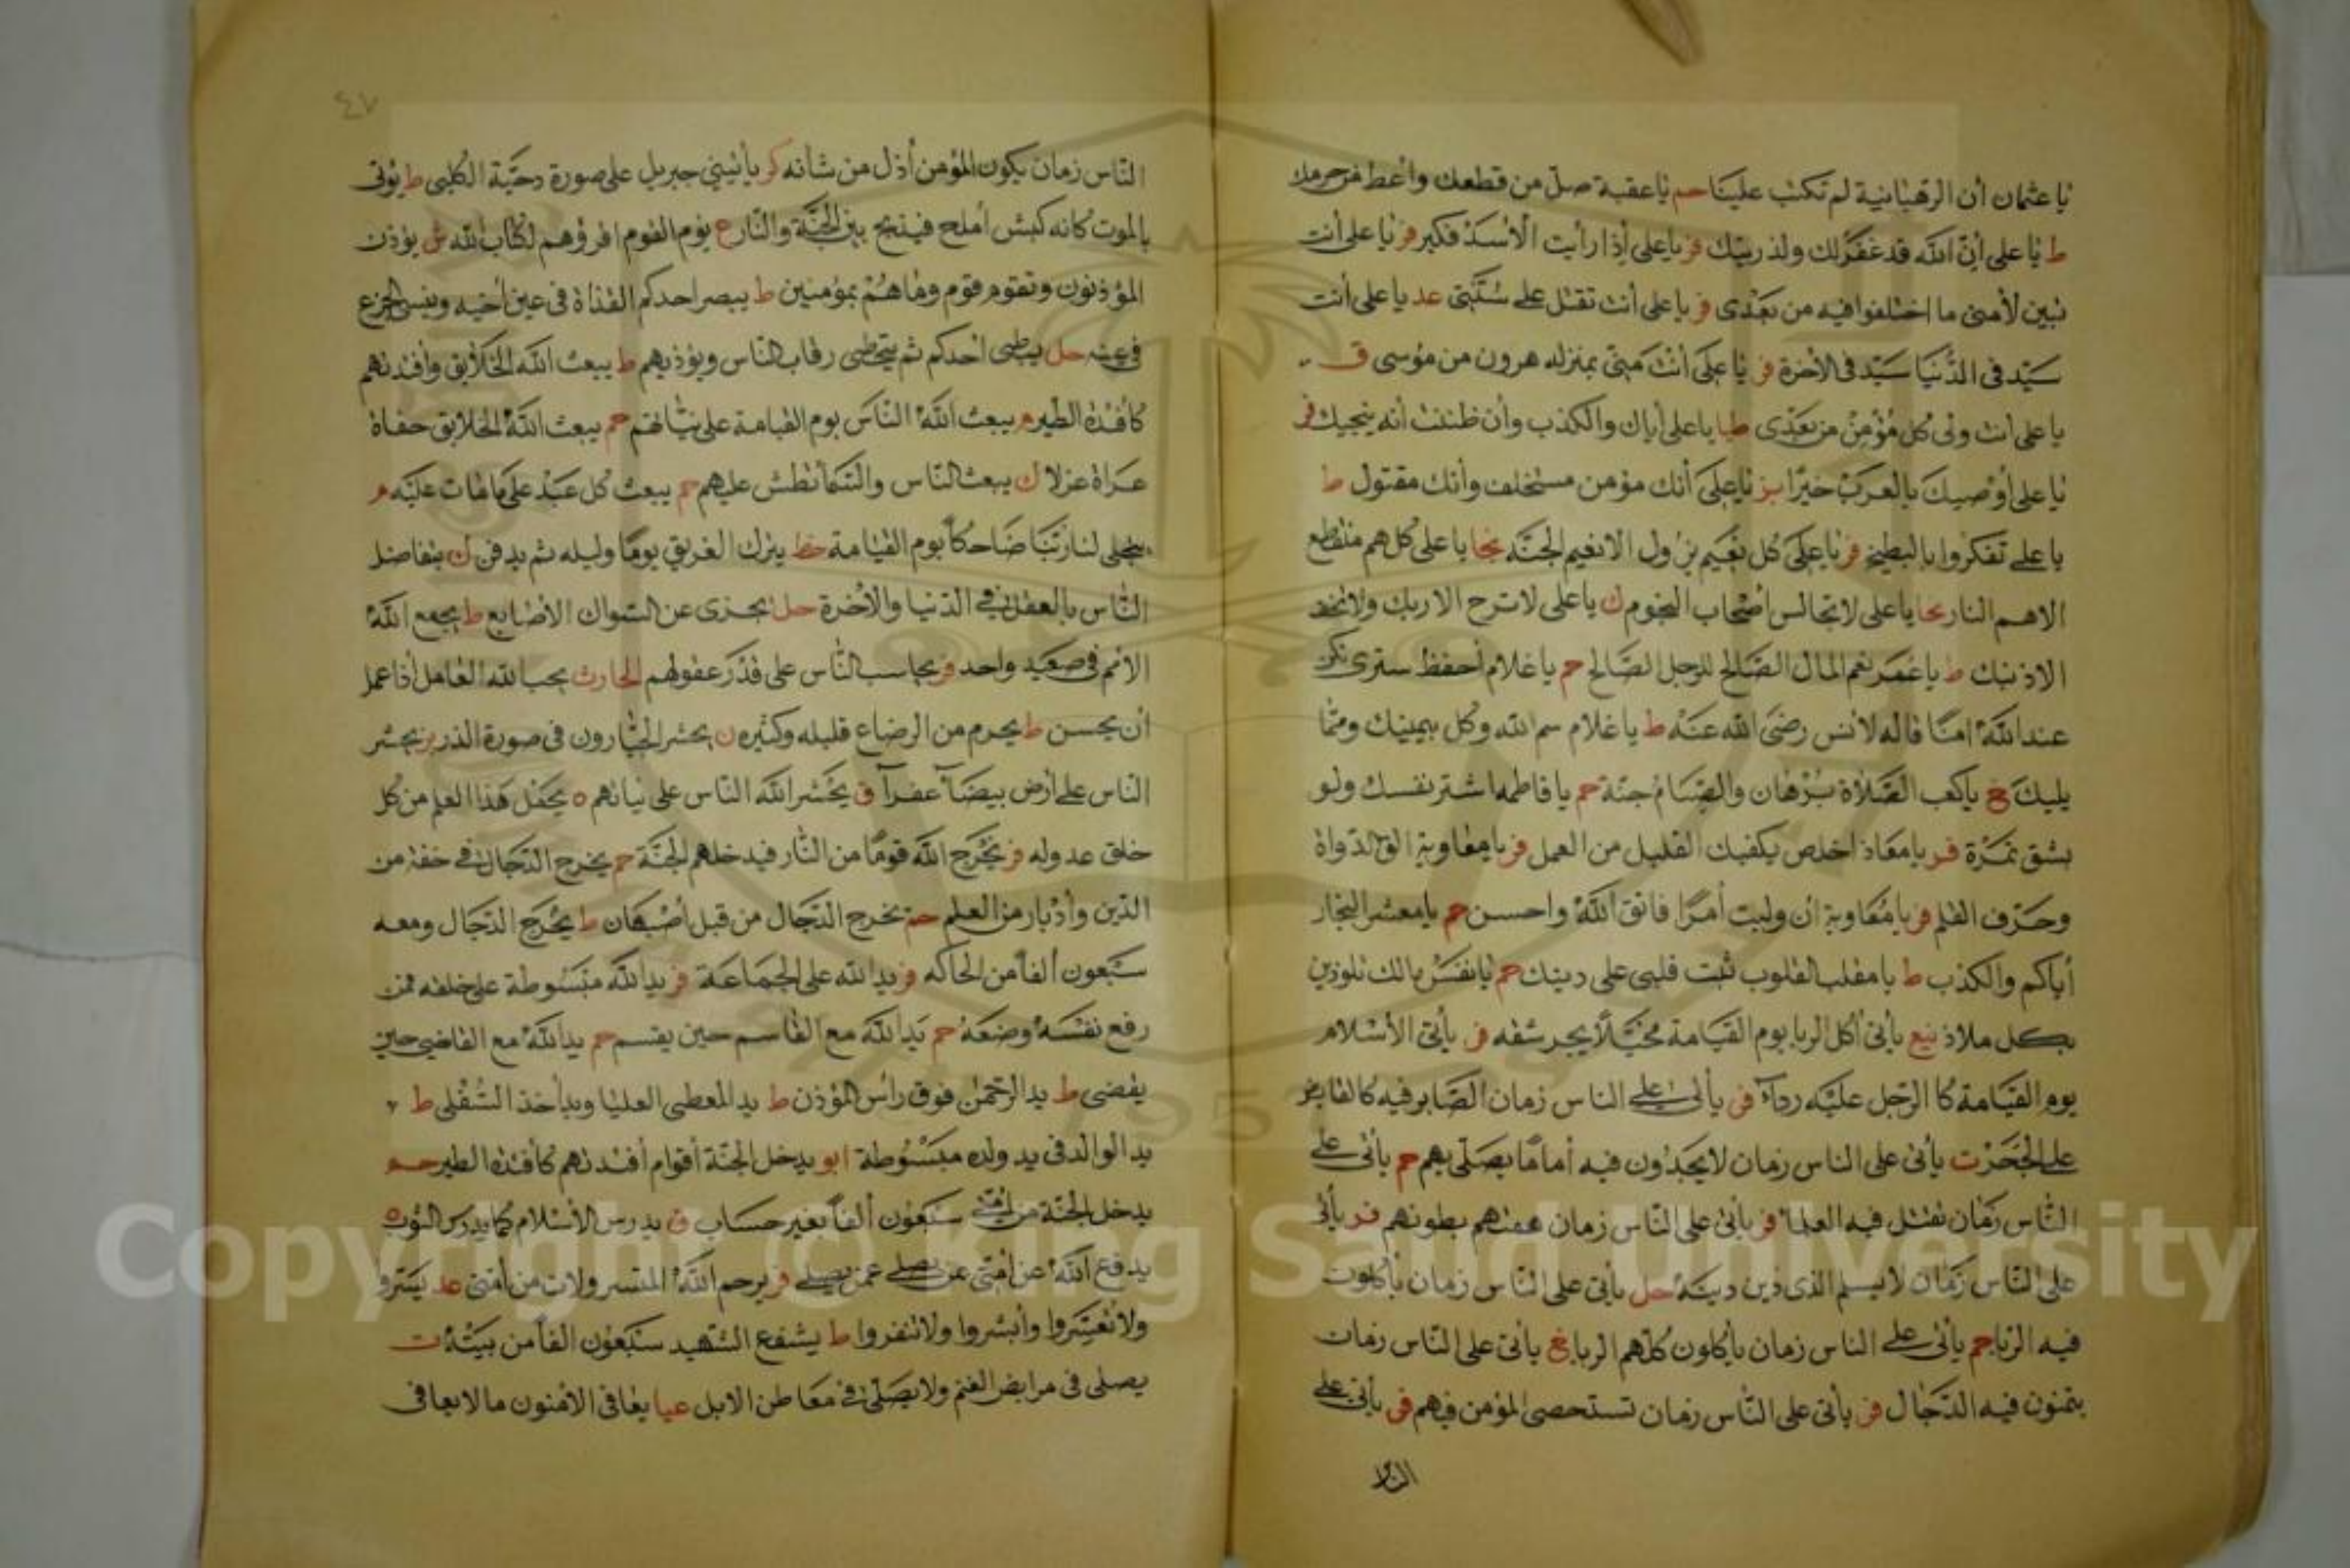 يا عثمان أن الرهبانية لم تكتب علينا حم يا عقبة صل من قطعك وأعط من حرمك
ط يا علي ان الله قد غفر لك ولذريتك فر يا علي إذا رأيت الأسد فكبر فر يا علي أنت
تبين لأمتي ما اختلفوا فيه من بعدي فر يا علي أنت تقتل على سنتي عد يا علي أنت
سيد في الدنيا سيد في الأخرة فر يا علي أنت مني بمنزله هرون من موسى ق
يا علي أنت ولي كل مؤمن من بعدي طيا يا علي أياك والكذب وأن ظننت أنه ينجيك فر
يا علي أوصيك بالعرب خيرا بز يا علي أنك مؤمن مستخلف وأنك مقتول ط
يا علي تفكروا بالبطيخ فر يا علي كل نعيم يزول الا نعيم الجنة نجا يا علي كل هم منقطع
الا هم النار نجا يا علي لا تجالس أصحاب النجوم ك يا علي لا ترج الا ربك ولا تخف
الا ذنبك ط يا عمر نعم المال الصالح للرجل الصالح حم يا غلام أحفظ ستري تكن
عند الله امنا قاله لأنس رضي الله عنه ط يا غلام سم الله وكل بيمينك ومما
يليك خ يا كعب الصلاة برهان والصيام جنة حم يا فاطمه اشتر نفسك ولو
بشق تمرة فر يا معاذ اخلص يكفيك القليل من العمل فر يا معاوية الق الدواة
وحرف القلم فر يا معاوية ان وليت أمرا فاتق الله واحسن حم يا معشر التجار
أياكم والكذب ط يا مقلب القلوب ثبت قلبي على دينك حم يا نفس مالك تلوذين
بكل ملاذ نيع يأتي أكل الربا يوم القيامة مخبلا يجر شفه فر يأتي الأسلام
يوم القيامة كا الرجل عليه رداء فر يأتي على الناس زمان الصابر فيه كالقابض
على الجمر ت يأتي على الناس زمان لا يجدون فيه أماما يصلي بهم حم يأتي على
الناس زمان تقتل فيه العلما فر يأتي على الناس زمان همتهم بطونهم فر يأتي
على الناس زمان لا يسلم الذي دين دينه حل يأتي على الناس زمان يأكلون
فيه الربا حم يأتي على الناس زمان يأكلون كلهم الربا غ يأتي على الناس زمان
يتمنون فيه الدجال فر يأتي على الناس زمان تستحصى المؤمن فيهم فر يأتي على
الناس
٤٧
الناس زمان يكون المؤمن أذل من شاته كر يأتيني جبريل على صورة دحية الكلبي ط يؤتى
بالموت كانه كبش أملح فيذبح بين الجنة والنار ع يؤم القوم اقرؤهم لكتاب الله ش يؤذن
المؤذنون وتقوم قوم وما هم بمؤمنين ط يبصر احدكم القذاة في عين أخيه وينسى الجزع
في عينه حل يبطي احدكم ثم يتخطى رقاب الناس ويؤذيهم ط يبعث الله الخلائق وأفئدتهم
كأفئدة الطير م يبعث الله الناس يوم القيامة على نياتهم حم يبعث الله الخلائق حفاة
عراة عزلا ك يبعث الناس والسما تطش عليهم حم يبعث كل عبد على ما مات عليه م
يتجلى لنا ربنا ضاحكا يوم القيامة خط يترك الغريق يوما وليله ثم يدفن ن يتفاضل
الناس بالعقل في الدنيا والأخرة حل يجزى عن السواك الأصابع ط يجمع الله
الأمم في صعيد واحد فر يحاسب الناس على قدر عقولهم الحارث يحب الله العامل أذا عمل
أن يحسن ط يحرم من الرضاع قليله وكثيره ن يحشر الجبارون في صورة الذر بز يحشر
الناس على أرض بيضاء عفراء ق يحشر الله الناس على نياتهم ه يحمل هذا العلم من كل
خلق عدوله فر يخرج الله قوما من النار فيدخلهم الجنة حم يخرج الدجال في خفة من
الدين وأدبار من العلم حم يخرج الدجال من قبل أصبهان ط يخرج الدجال ومعه
سبعون ألفا من الحاكه فر يد الله على الجماعة فر يد الله مبسوطة على خلقه فمن
رفع نفسه وضعه حم يد الله مع القاسم حين يقسم حم يد الله مع القاضي حين
يقضي ط يد الرحمن فوق رأس المؤذن ط يد المعطي العليا ويد أخذ السفلى ط
يد الوالد في يد ولده مبسوطة ابو يدخل الجنة أقوام أفئدتهم كأفئدة الطير حم
يدخل الجنة من أمتي سبعون ألفا بغير حساب ق يدرس الأسلام كما يدرس الثوب ه
يدفع الله عن أمتي عن يصلي عمن يصلي فر يرحم الله المتسرولات من أمتي عد يسروا
ولا تعسروا وأبشروا ولا تنفروا ط يشفع الشهيد سبعون الفا من بيته ت
يصلى في مرابض الغنم ولا يصلى في معاطن الابل عيا يعافى الأميون ما لا يعافى
Copyright © King Saud University